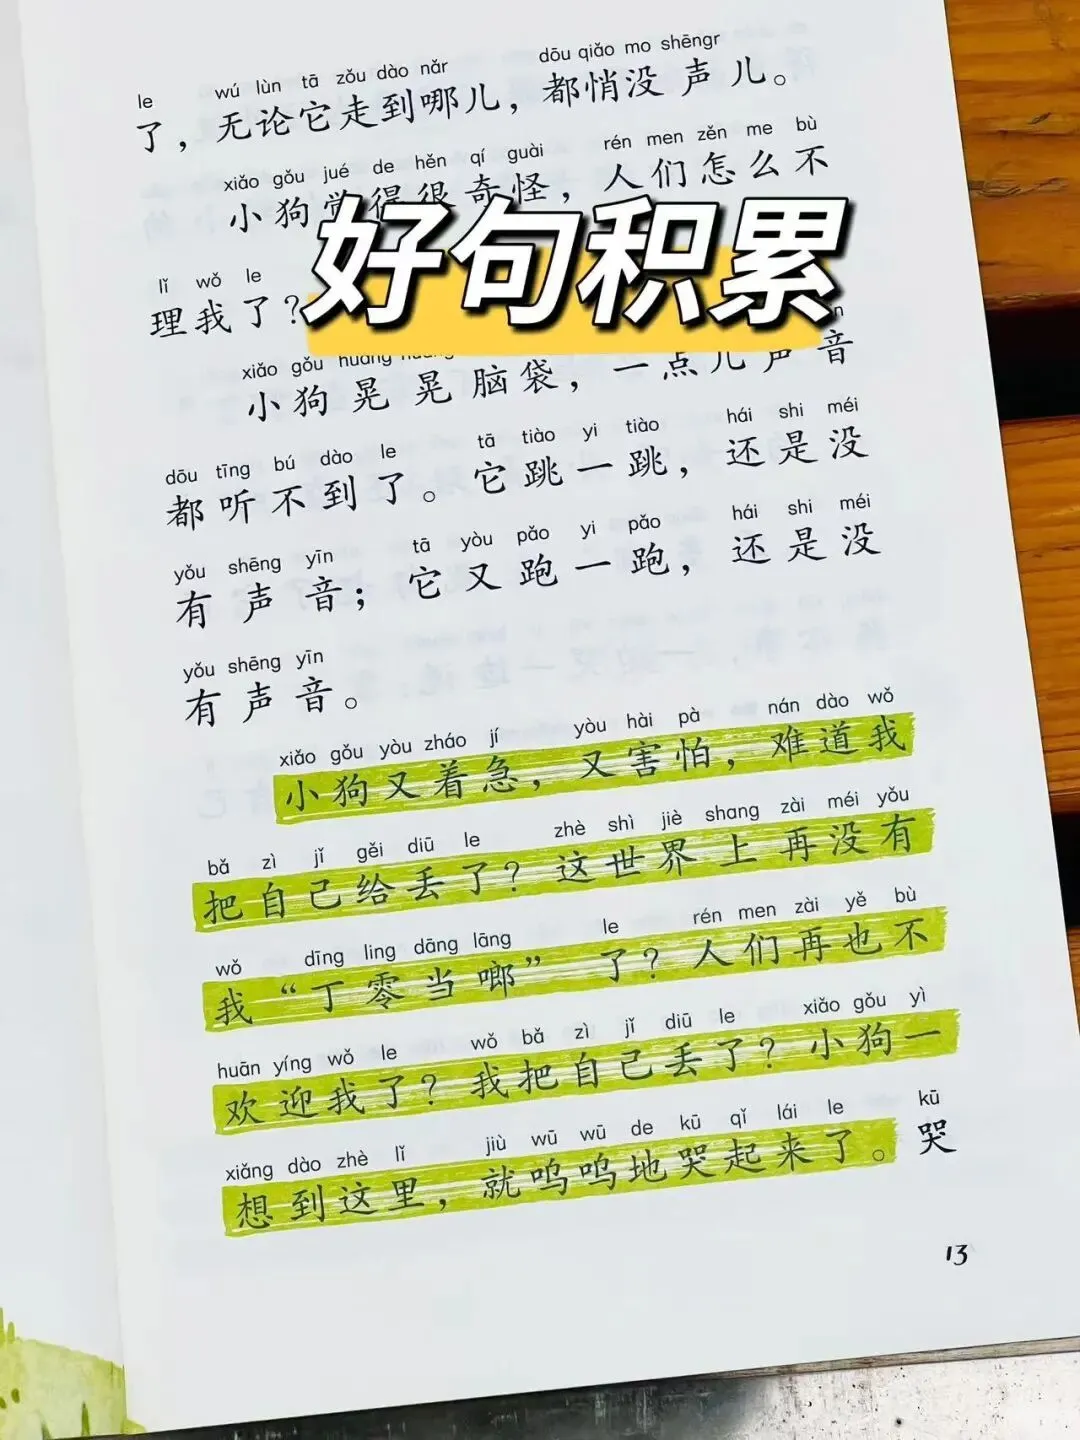 le wú lùn tā zǒu dào nǎr dōu qiǎo mo shēngr
了，无论它走到哪儿，都悄没声儿。
xiǎo gǒu jué de hěn qí guài rén men zěn me bù
小狗觉得很奇怪，人们怎么不
好句积累
lǐ wǒ le
理我了？
xiǎo gǒu huàng
小狗晃晃脑袋，一点儿声音
dōu tīng bú dào le tā tiào yi tiào hái shi méi
都听不到了。它跳一跳，还是没
yǒu shēng yīn tā yòu pǎo yi pǎo hái shi méi
有声音；它又跑一跑，还是没
yǒu shēng yīn
有声音。
xiǎo gǒu yòu zháo jí yòu hài pà nán dào wǒ
小狗又着急，又害怕，难道我
bǎ zì jǐ gěi diū le zhè shì jiè shang zài méi yǒu
把自己给丢了？这世界上再没有
wǒ dīng ling dāng lāng le rén men zài yě bù
我“丁零当啷”了？人们再也不
huān yíng wǒ le wǒ bǎ zì jǐ diū le xiǎo gǒu yì
欢迎我了？我把自己丢了？小狗一
xiǎng dào zhè lǐ jiù wū wū de kū qǐ lái le kū
想到这里，就呜呜地哭起来了。哭
13